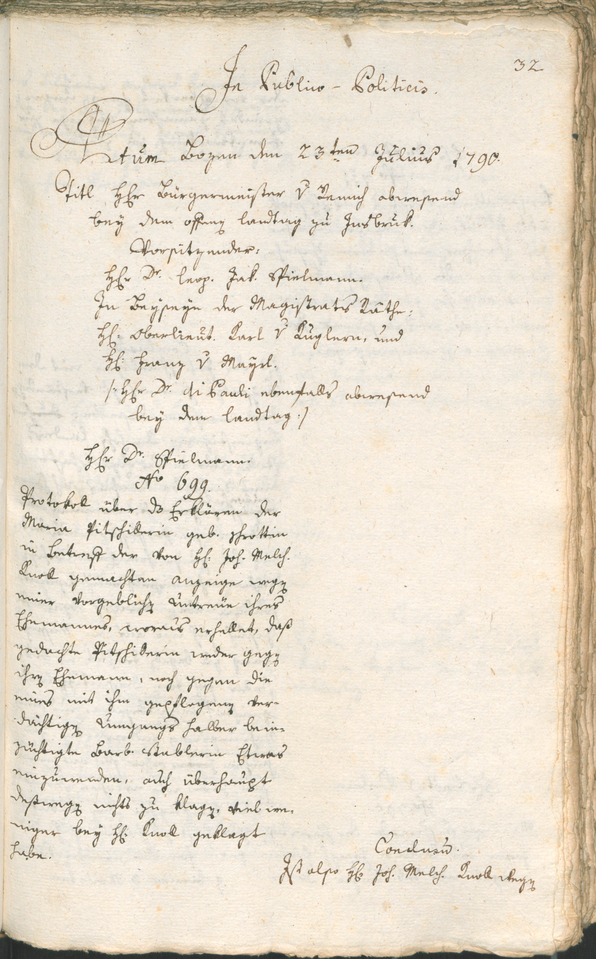 32
In Publico-Politicis.
Actum Bozen den 23ten Julius 1790.
Titl HHr Bürgermeister v Remich abwesend
bey dem offenen landtag zu Insbruk.
Vorsitzender:
HHr Dr. leop. Jak. Spielmann.
In Beyseyn der Magistrats Räthe:
HH. Oberlieut. Karl v Kuglern, und
HH. Franz v Mayrl.
/: HHr Dr. di Pauli ebenfalls abwesend
bey dem landtag :/
HHr Dr. Spielmann.
No 699.
Protokol über ds Erklären der
Maria Pitschiderin geb.
in Betreff der von HH. Joh. Melch.
Knoll gemachten anzeige wegen
einer vorgeblichen untreue ihres
Ehemannes, woraus erhellet, daß
gedachte Pitschiderin weder gegen
ihren Ehemann, noch gegen die
eines mit ihm gepflogenen ver-
dächtigen umgangs halber bein-
züchtigte Barb. Stablerin Etwas
einzuwenden, auch überhaupt
deßwegen nichts zu klagen, viel we-
niger bey HH. Knoll geklagt
habe.
Conclusum.
Ist also HH Joh. Melch. Knoll wegen